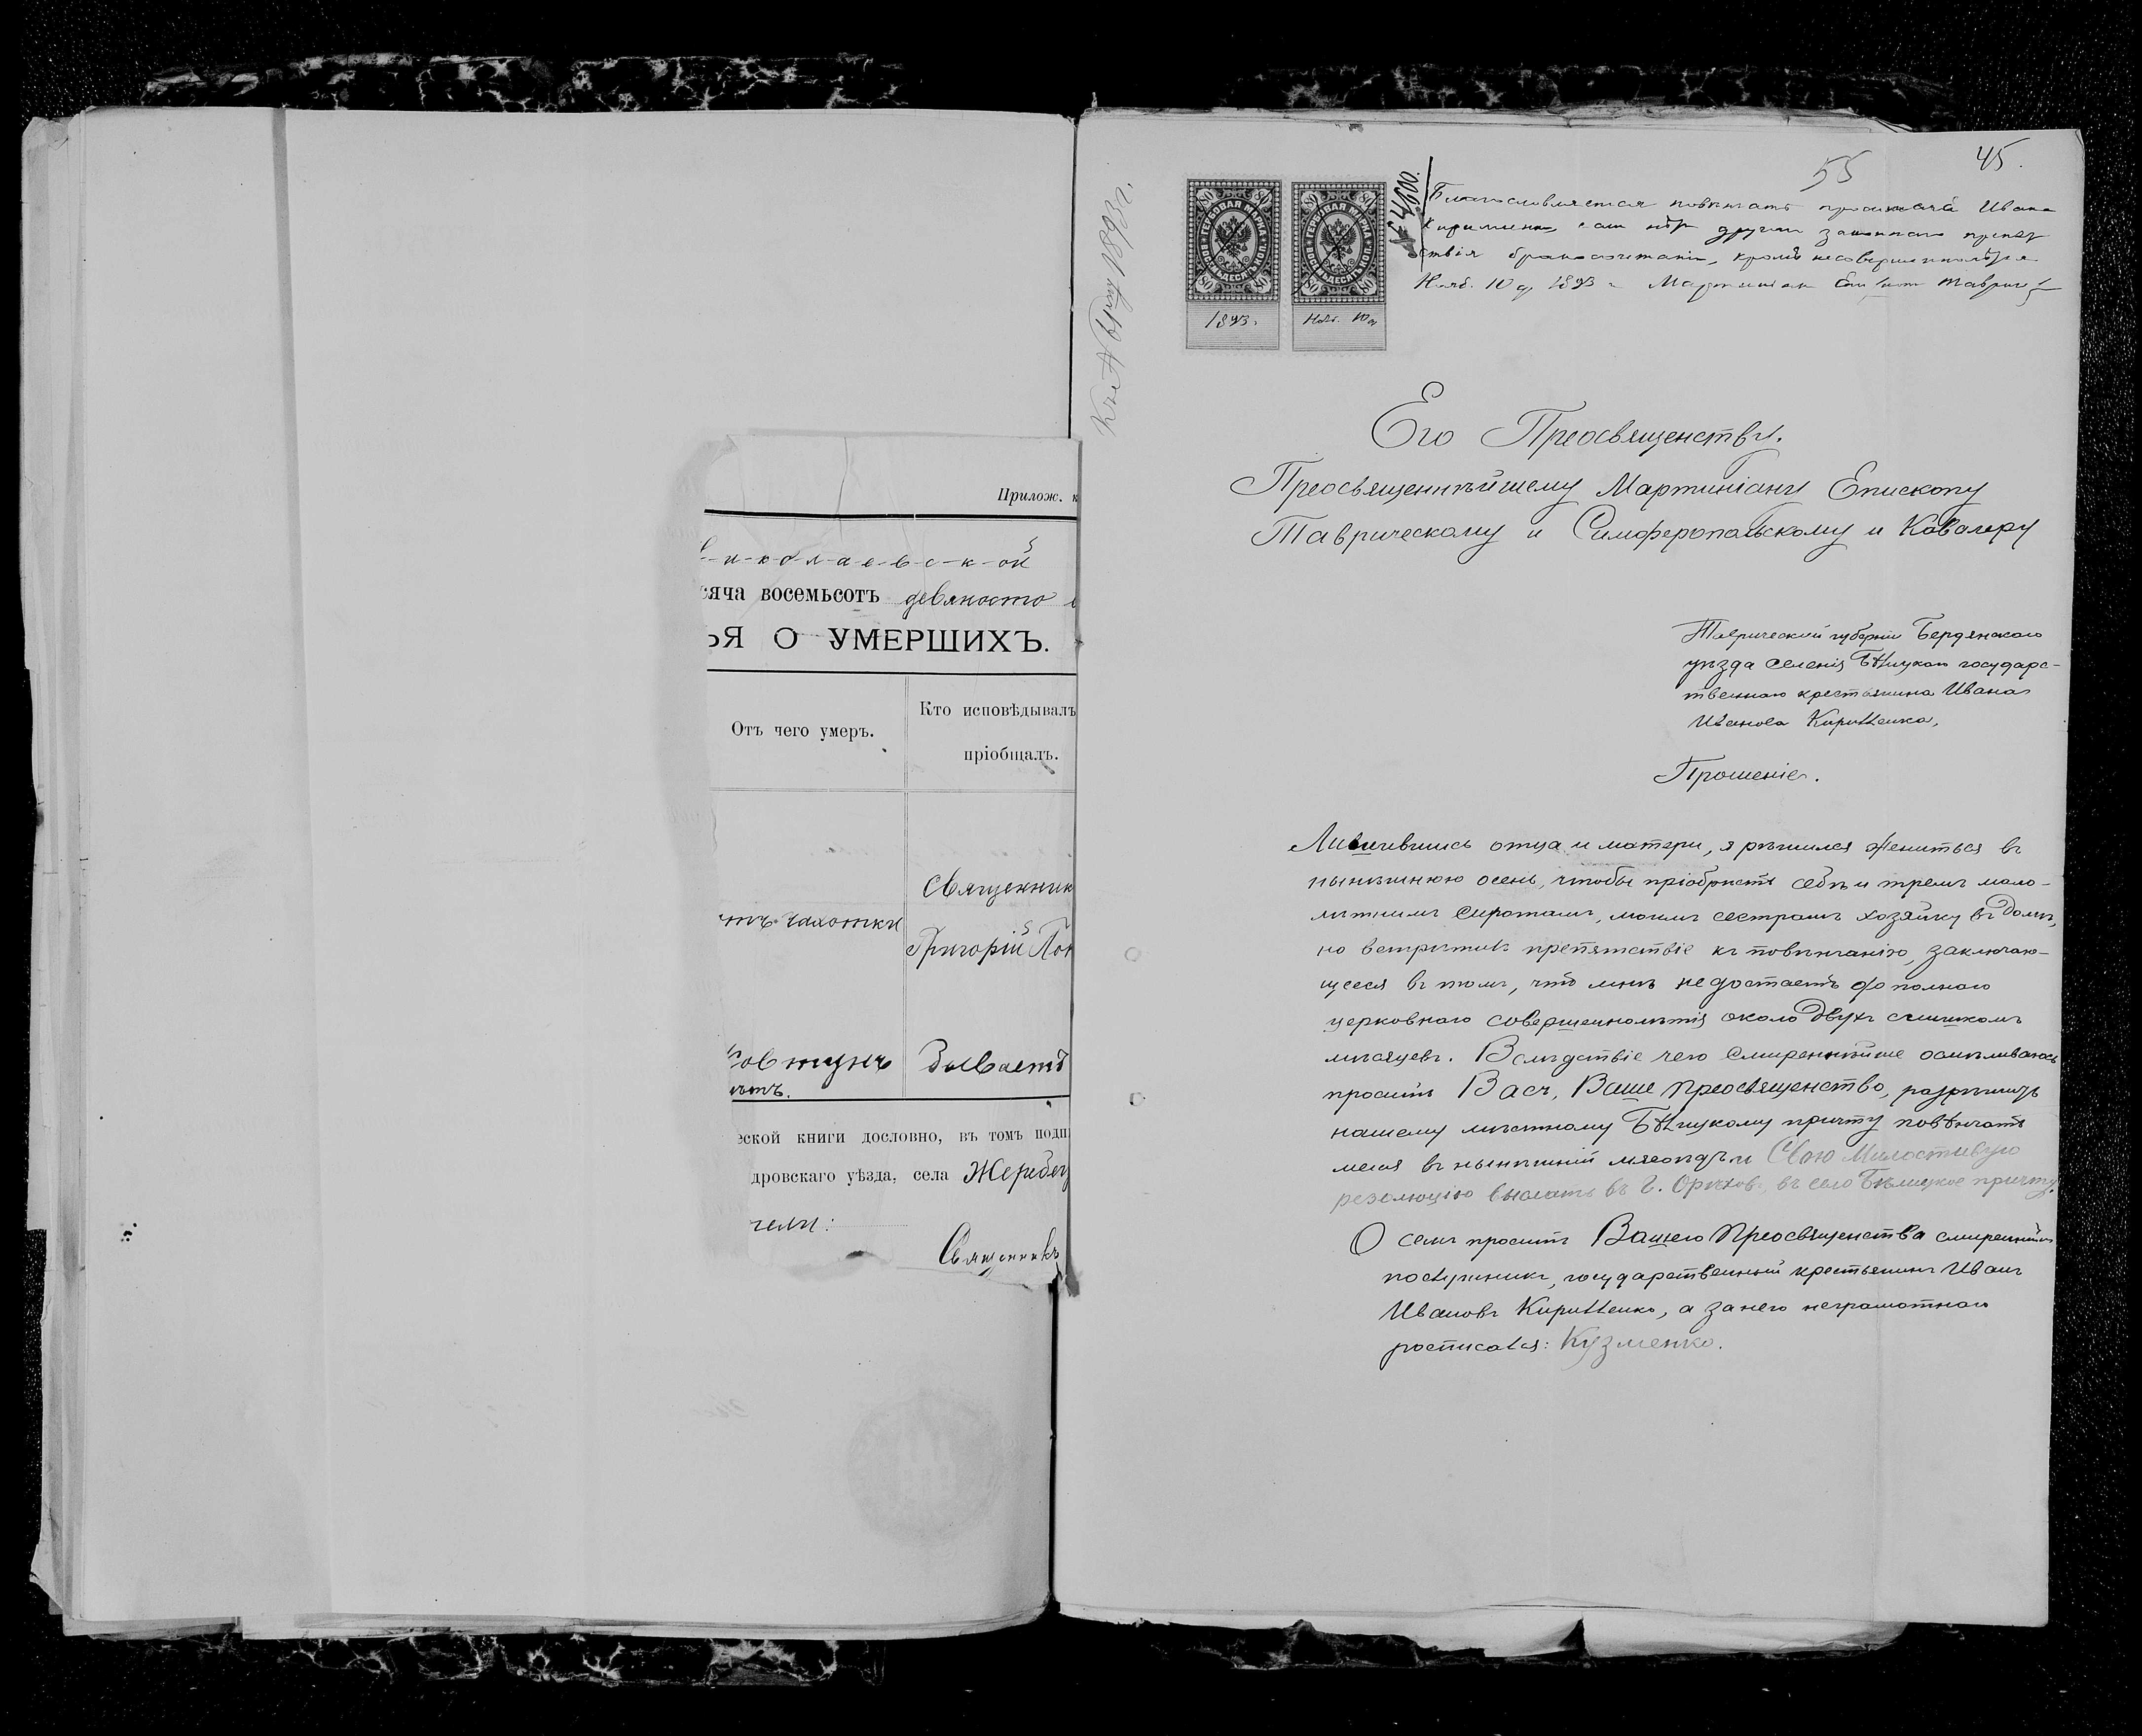 Прилож. к
-и-к-о-л-а-е-в-с-к-ой
сяча восемьсотъ девяносто
ья О УМЕРШИХЪ.
Отъ чего умеръ.
Кто исповѣдывалъ
пріобщалъ.
тъ чахотки
Священник
Григорій Пон
ской книги дословно, въ томъ подп
дровскаго уѣзда, села Жеребец
тели:
Священникъ
55
45.
№ 4800.
80 80
ГЕРБОВАЯ МАРКА
ВОСЕМЬДЕСЯТЪ КОП.
80 80
1893 г.
80 80
ГЕРБОВАЯ МАРКА
ВОСЕМЬДЕСЯТЪ КОП.
80 80
Нояб. 10 д
Благословляется повѣнчать просителя Ивана
Кириленко, если нѣтъ другаго законнаго препят
ствія бракосочетанію, кромѣ несовершеннолѣтія
Нояб. 10 д 1893 г Мартиніан Епископ Таврич
1893 г.
Его Преосвященству.
Преосвященнѣйшему Мартиніану Епископу
Таврическому и Симферопольскому и Кавалеру
Таврической губерніи Бердянскаго
уѣзда селенія Бѣлицкаго государс-
твеннаго крестьянина Ивана
Иванова Кириленка,
Прошеніе.
Лишившись отца и матери, я рѣшился жениться въ
нынѣшнюю осень, чтобы пріобрѣсть себѣ и тремъ мало-
лѣтнимъ сиротамъ, моимъ сестрамъ хозяйку въ домѣ,
но встрѣтилъ препятствіе къ повѣнчанію, заключаю-
щееся въ томъ, что мнѣ недостаетъ до полнаго
церковнаго совершеннолѣтія около двухъ слишкомъ
мѣсяцевъ. Вслѣдствіе чего смиреннѣйше осмѣливаюсь
просить Васъ, Ваше Преосвященство, разрѣшить
нашему мѣстному Бѣлицкому причту повѣнчать
меня въ нынѣшній мясоѣдъ и Свою Милостивую
резолюцію выслать въ г. Орѣховъ, въ село Бѣлицкое причту.
О семъ проситъ Вашего Преосвященства смиреннѣйшій
послушникъ, государственный крестьянинъ Иванъ
Ивановъ Кириленко, а за него неграмотнаго
росписался: Кузменко.